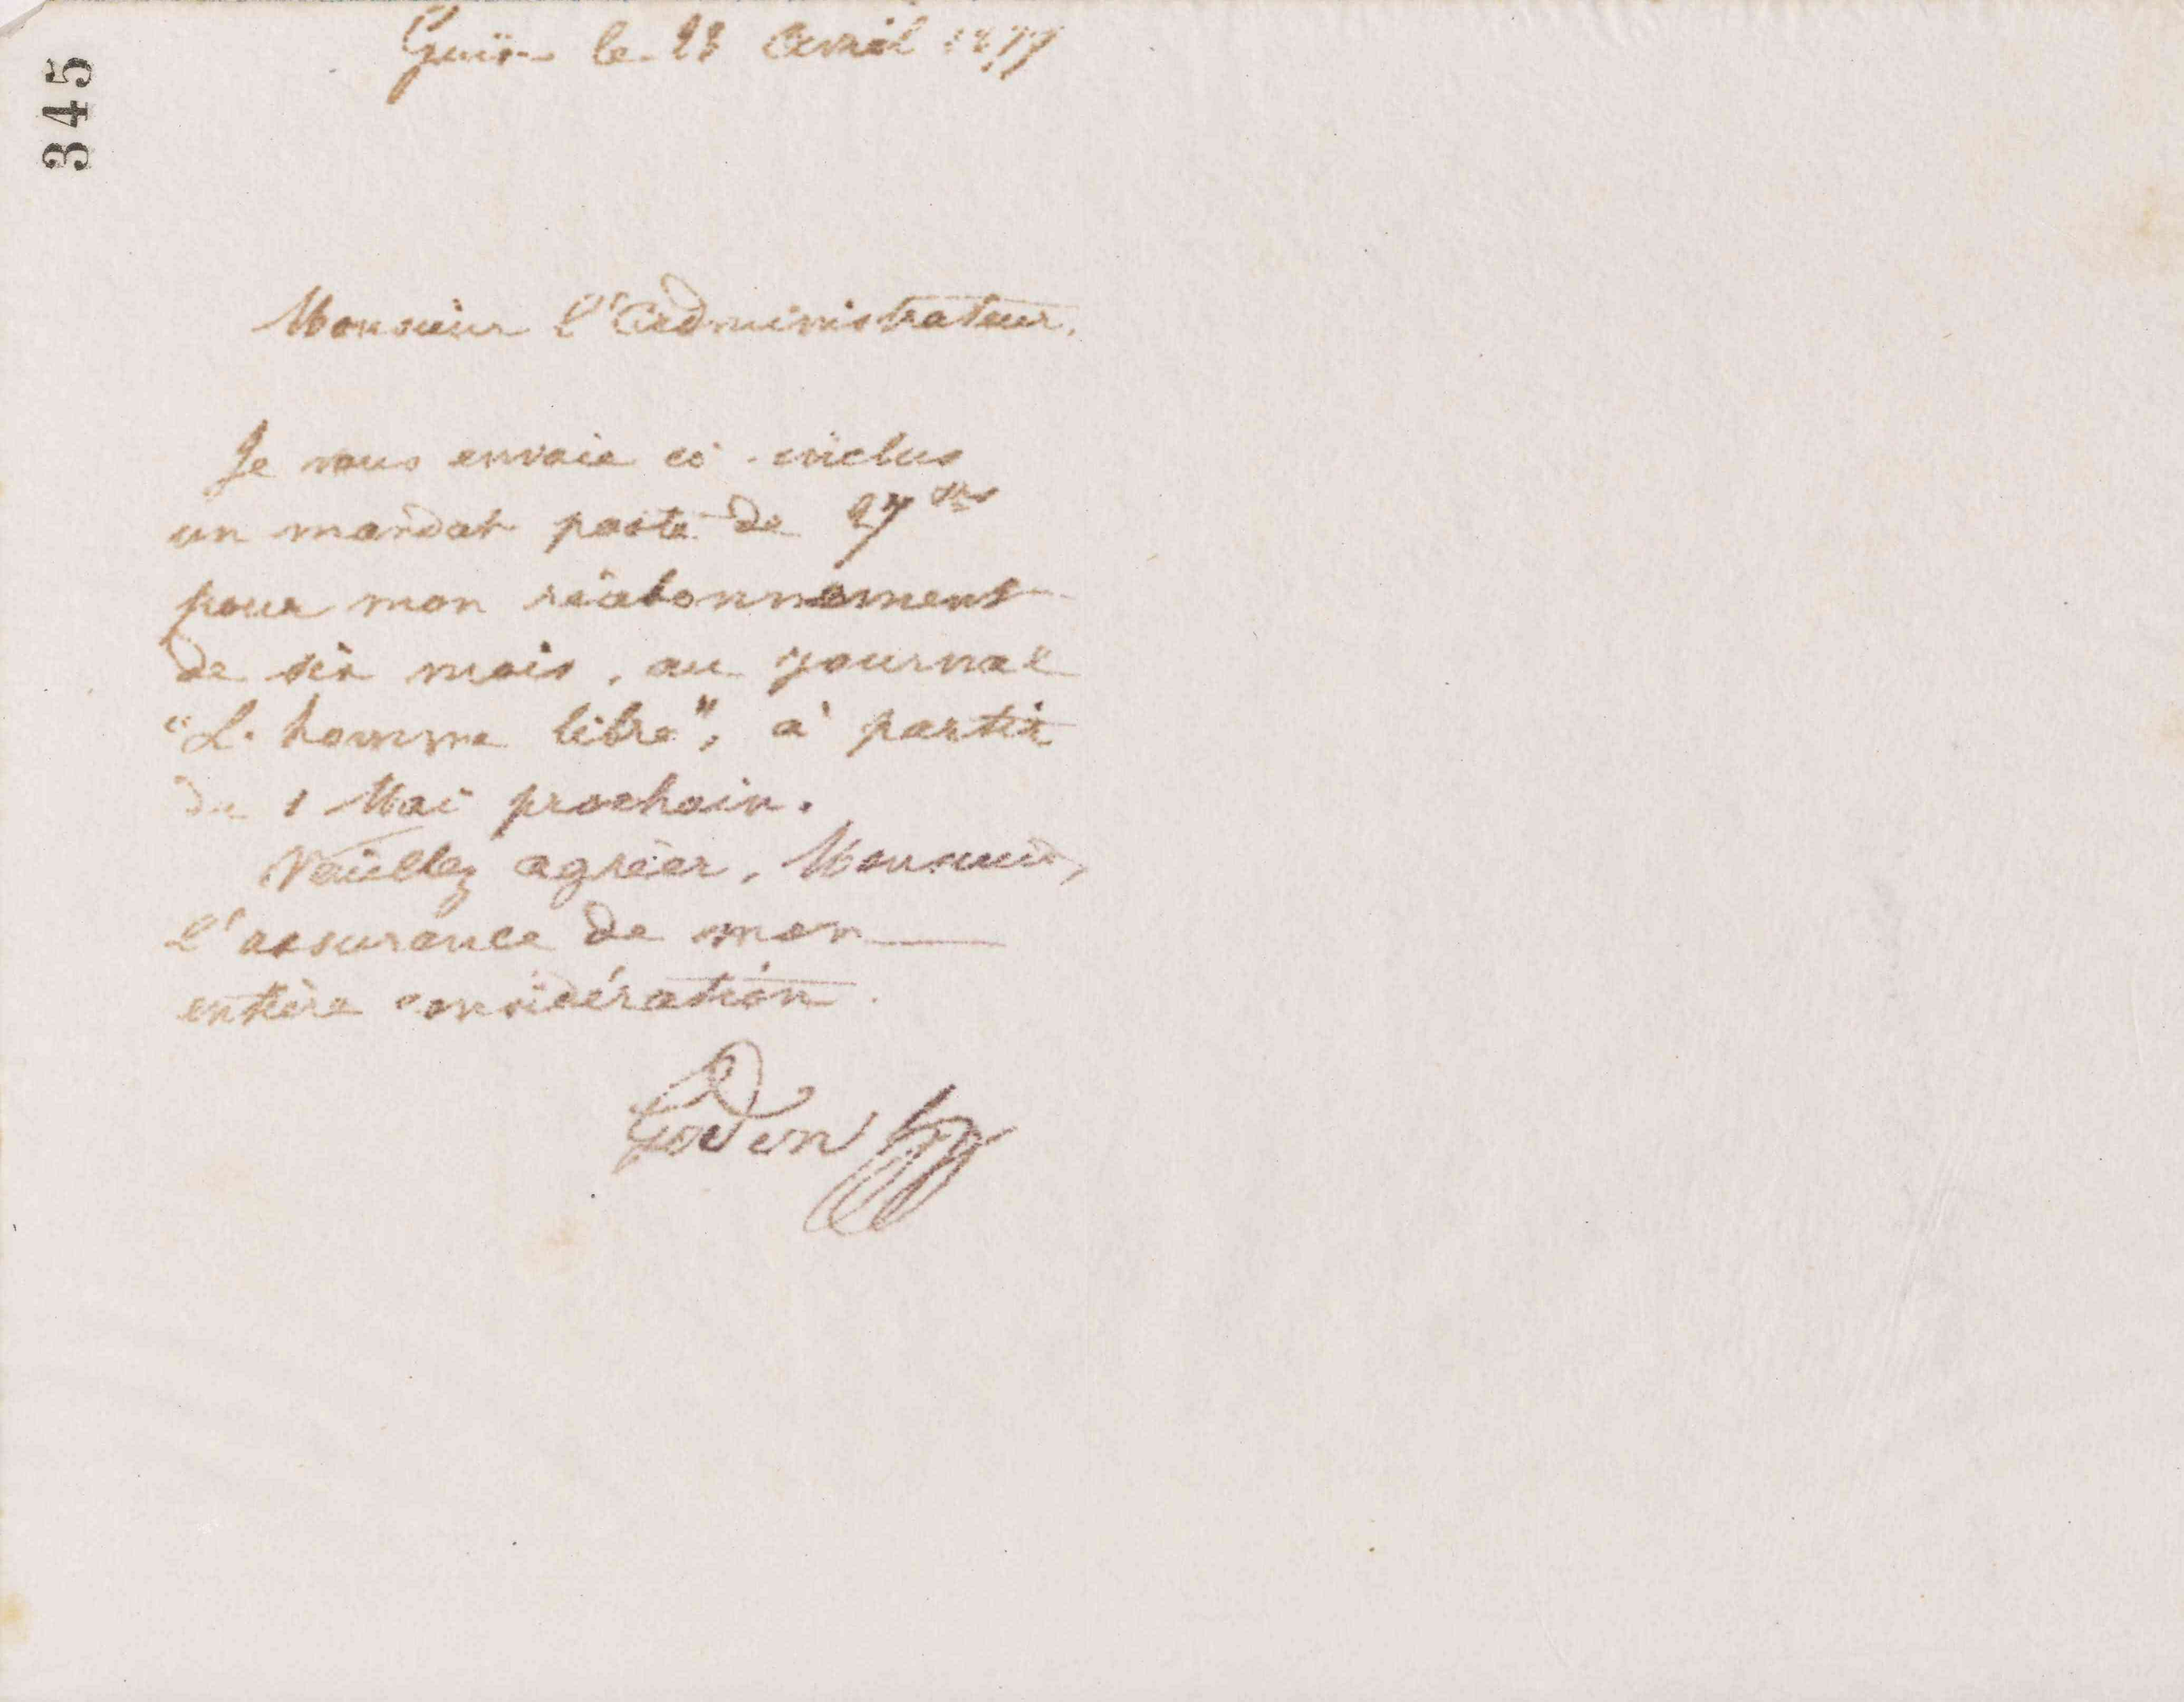 345
Guise le 23 Avril 1877
Monsieur l'Administrateur,
Je vous envoie ci-inclus
un mandat poste de 27 frs
pour mon réabonnement
de six mois, au journal
"L'homme libre", à partir
du 1 Mai prochain.
Veuillez agréer, Monsieur,
l'assurance de mon
entière considération.
Godin